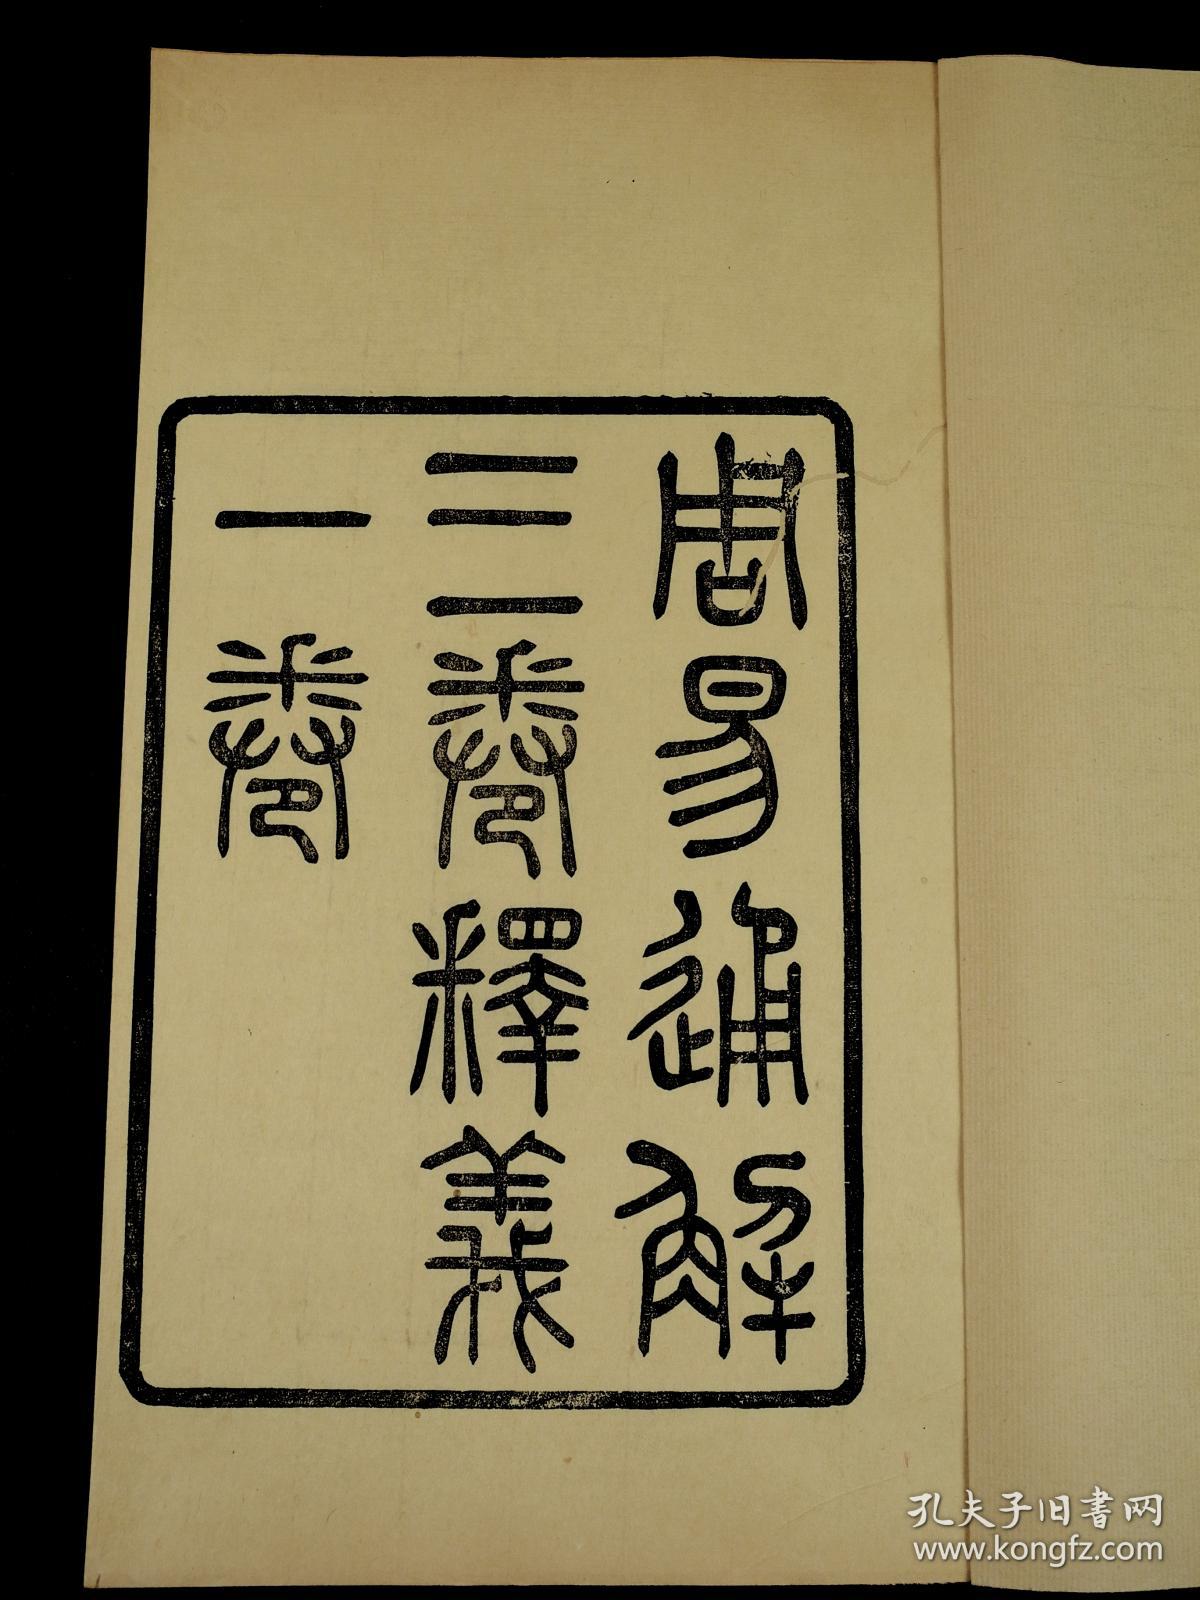 周易通解
三卷釋義
一卷
孔夫子旧书网
www.kongfz.com